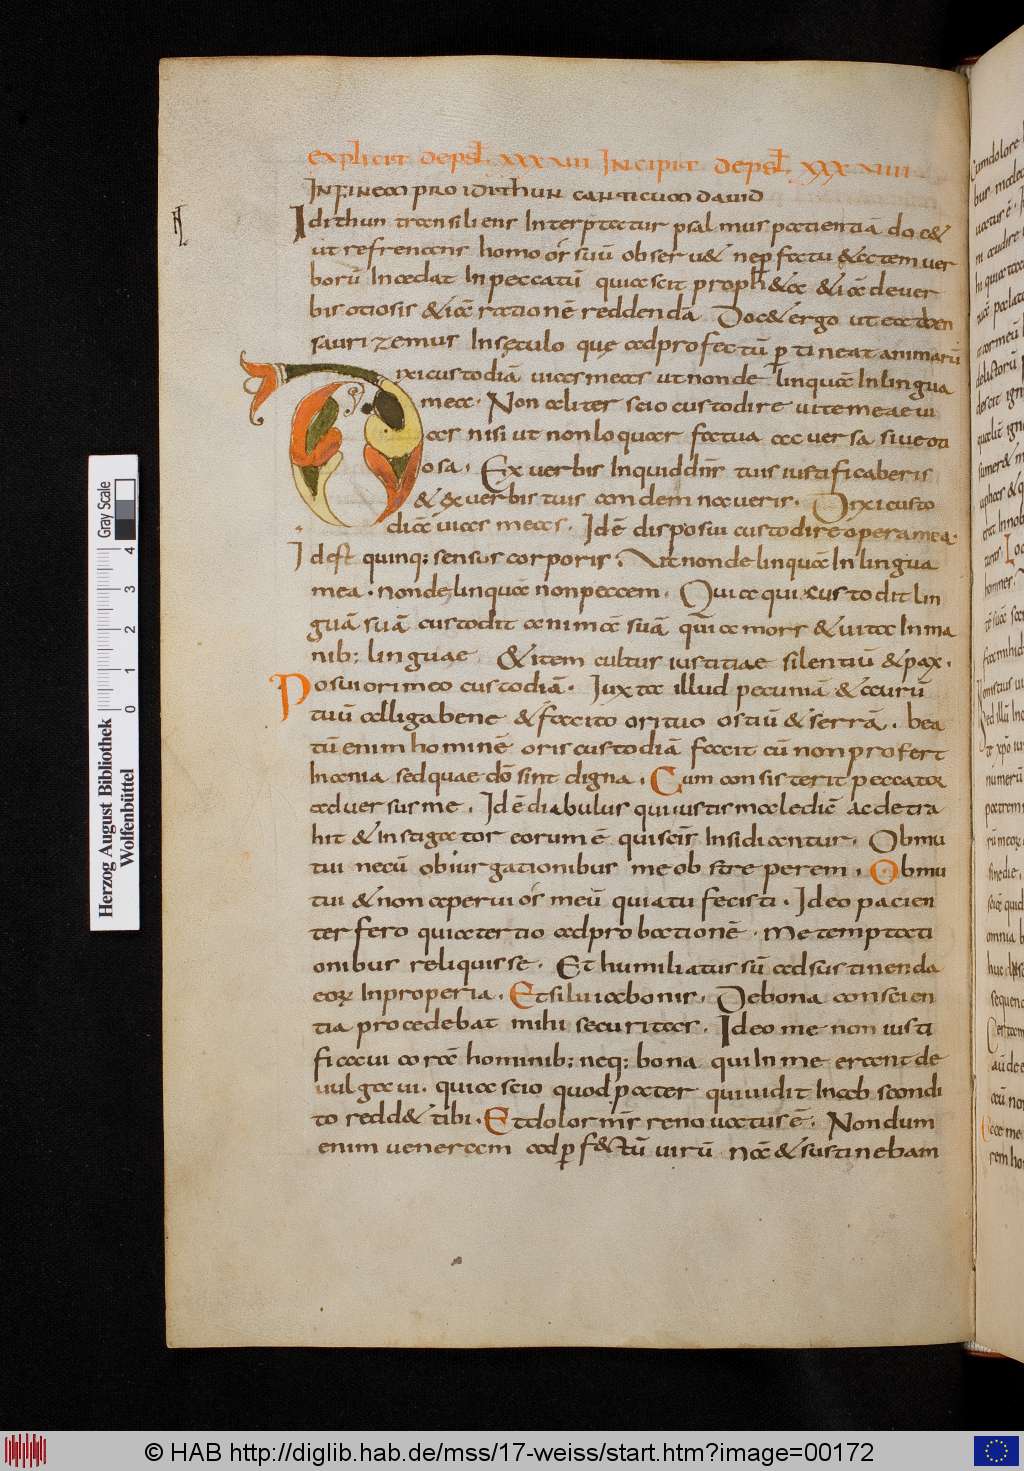 explicit de psł. xxxviii Incipit de psł. xxxviiii
IN FINEM PRO IDITHUN CANTICUM DAVID
Idithun transiliens Interptatur psalmus patientiā doc&
ut refrenans homo os̄ suū obseru& nep factu &actem uer
borū Incedat In peccatū quia scit proph&a &iā de uer
bis otiosis &iā rationē reddendā Doc& ergo ut ea
saurizemus In sęculo quę ad profectū ꝑtineat animarū
Dixi custodiā uias meas ut non delinquā In lingua
mea. Non aliter scio custodire uitae meae ui
as nisi ut non loquar fatua ac uersa siue oti
osa. Ex uerbis Inquid dn̄s tuis iustificaberis
& ex uerbis tuis condemnaueris. Dixi custo
diā uias meas. Id ē disposui custodire opera mea.
Id est quinq; sensus corporis. Ut non delinquā In lingua
mea. non delinquā non peccem. Quia qui custodit lin
guā suā custodit animā suā quia mors & uita In ma
nib; linguae & item cultus iustitiae silentiū & pax.
Posui ori meo custodiā. Iuxta illud pecuniā & aurū
tuū alliga bene & facito ori tuo ostiū & serrā. bea
tū enim hominē oris custodiā facit cū non profert
Inania sed quae dō sint digna. Cum consisterit peccator
aduersus me. Id ē diabulus qui iustis maledic̄ ac detra
hit & Instigator eorum ē qui sc̄is Insidiantur. Obmu
tui necū obiurgationibus me obstreperem. Obmu
tui & non aperui os̄ meū quia tu fecisti. Ideo pacien
ter fero quia tertio ad probationē. me temptati
onibus reliquisse. Et humiliatus sū ad sustinenda
eoꝝ Inproperia. Et silui a bonis. De bona conscien
tia procedebat mihi securitas. Ideo me non iusti
ficaui corā hominib; neq; bona qui In me erant de
uulgaui. quia scio quod pater qui uidit In abscondi
to redd& tibi. Et dolor ms̄ renouatus ē. Nondum
enim ueneram ad ꝑf&ctū uirū nā & sustinebam
Herzog August Bibliothek
Wolfenbüttel
Gray Scale
0 1 2 3 4
© HAB http://diglib.hab.de/mss/17-weiss/start.htm?image=00172